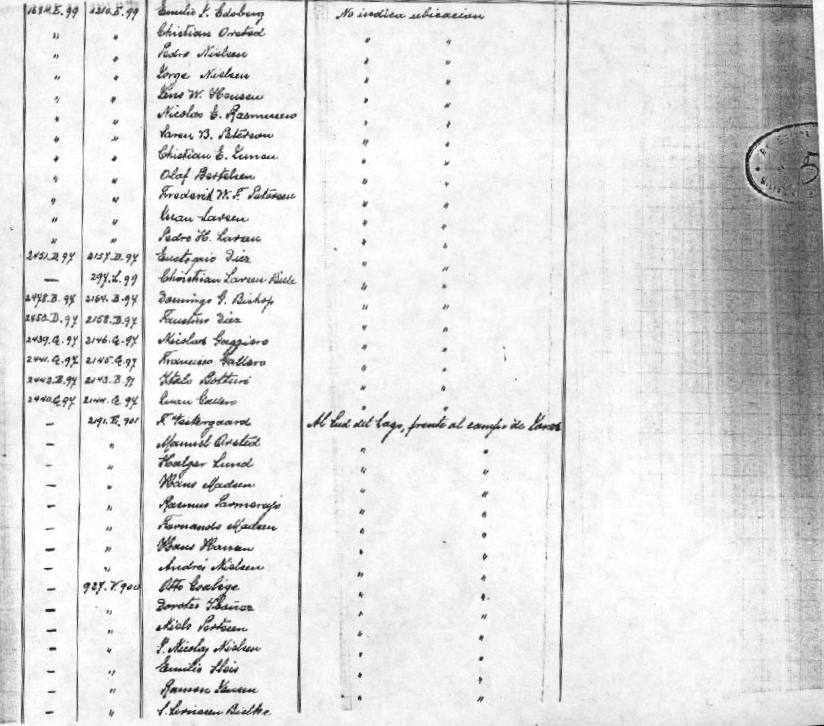 1684.E.99 2210.E.99 Emilio S. Edsberg No indica ubicacion
" " Christian Orsted " "
" " Pedro Nielsen " "
" " Jorge Nielsen " "
" " Jens W. Hansen " "
" " Nicolas E. Rasmussen " "
" " Saren B. Peterson " "
" " Christian E. " "
" " Olaf Bertelsen " "
" " Frederik W. F. Petersen " "
" " Juan Larsen " "
" " Pedro H. Larsen " "
2451.D.97 2157.D.97 Eustaquio Diez " "
— 297.L.99 Christian Larsen Bille " "
2478.B.97 2164.B.97 Domingo G. Bishop " "
2450.D.97 2158.D.97 Faustino Diez " "
2439.G.97 2146.G.97 Nicolas Gaggero " "
2441.G.97 2145.G.97 Francisco Gallero " "
2442.B.97 2143.B.97 Italo Botturi " "
2440.G.97 2144.G.97 Juan Gallero " "
— 2191.V.901 F. Vestergaard Al Sud del Lago, frente al campo de
— " Manuel Orsted " "
— " Holger Lund " "
— " Hans Madsen " "
— " Rasmus " "
— " Fernando Madsen " "
— " Hans Hansen " "
— " Andrés Nielsen " "
— 927.V.900 Otto " "
— " Doroteo Ibañez " "
— " Niels " "
— " S. Nicolas Nielsen " "
— " Emilio " "
— " Ramon " "
— " Bielke "